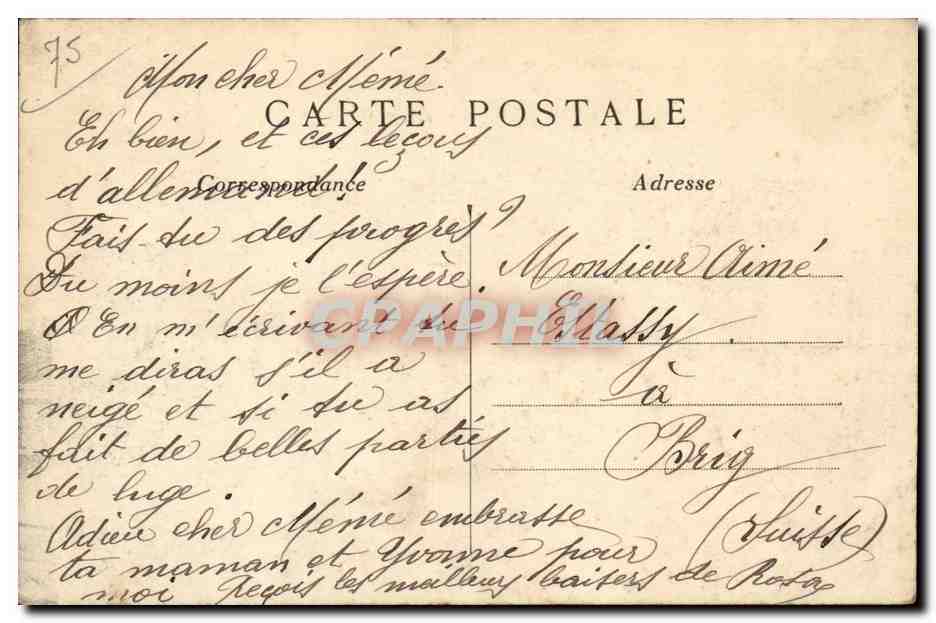 75
Mon cher Mémé.
CARTE POSTALE
Eh bien, et ces leçons
d'allemand!
Correspondance
Fais-tu des progrès?
Du moins je l'espère.
En m'écrivant tu
me diras s'il a
neigé et si tu as
fait de belles parties
de luge.
Adieu cher Mémé embrasse
ta maman et Yvonne pour
moi Reçois les meilleurs baisers de Rosa
Adresse
Monsieur Aimé
à
Brig
(Suisse)
CPAPHIL